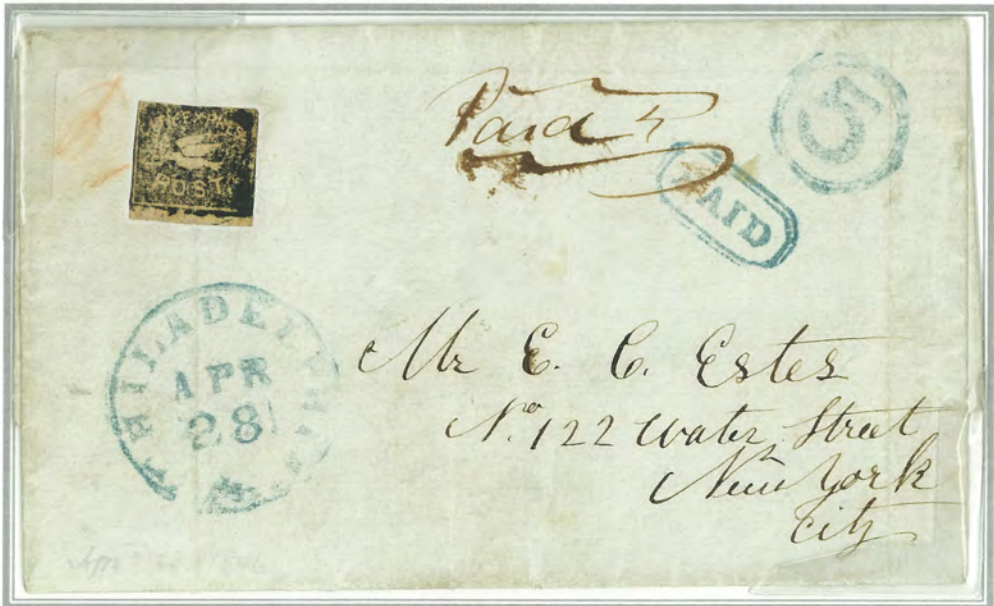 POST.
Paid 5
5
PAID
PHILADELPHIA
APR
28
Mr E. C. Estes
No. 122 Water Street
New York
City